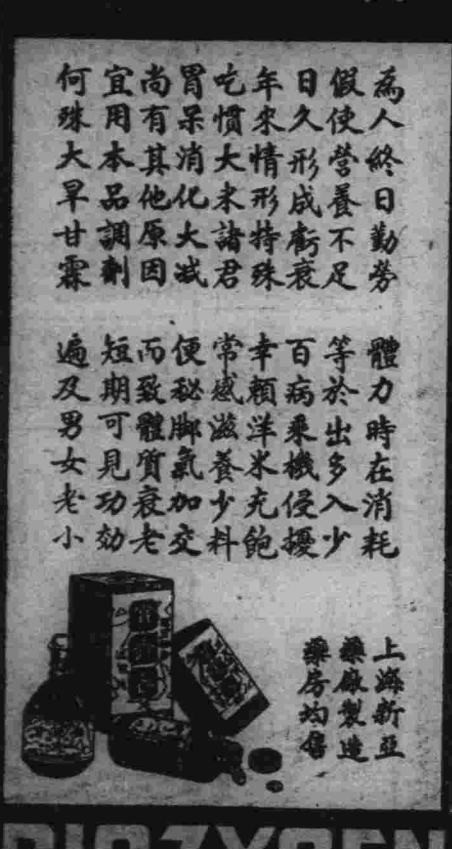 為人終日勤勞
假使營養不足
日久形成虧衰
年來情形特殊
吃慣大米諸君
胃呆消化大减
尚有其他原因
宜用本品調劑
何殊大旱甘霖
體力時在消耗
等於出多入少
百病乘機侵擾
幸賴洋米充飽
常感滋養少料
便秘脚氣加交
而致體質衰老
短期可見功効
遍及男女老小
上海新亞
藥廠製造
藥房均售